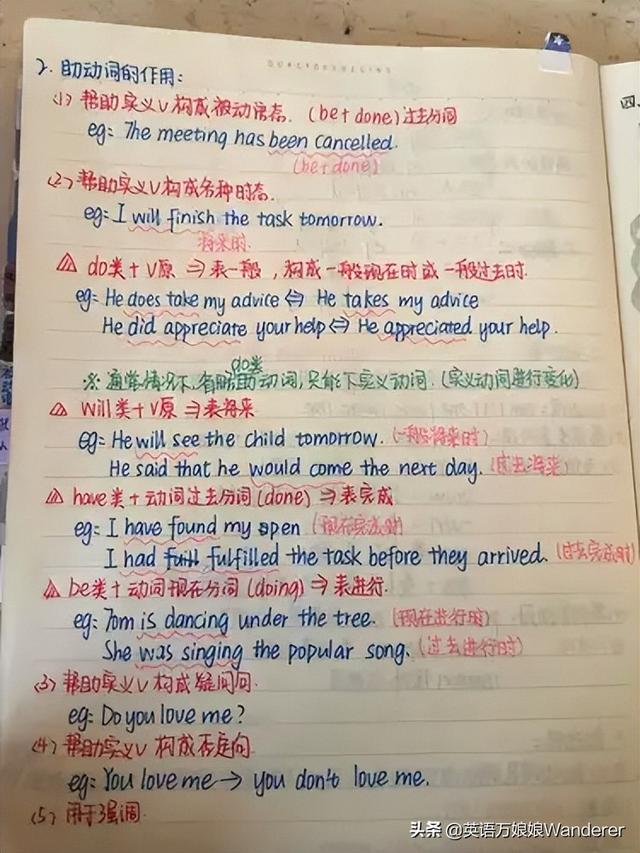 2. 助动词的作用:
(1) 帮助实义V构成被动语态. (be+done)过去分词
eg: The meeting has been cancelled.
(be+done)
(2) 帮助实义V构成各种时态.
eg: I will finish the task tomorrow.
将来时.
△ do类+V原 ⇒ 表一般, 构成一般现在时或一般过去时.
eg: He does take my advice ⇔ He takes my advice
He did appreciate your help ⇔ He appreciated your help.
do类
※ 通常情况下, 有助动词, 只能下实义动词. (实义动词进行变化)
△ will类+V原 ⇒ 表将来
eg: He will see the child tomorrow. (一般将来时)
He said that he would come the next day. (过去将来)
△ have类+动词过去分词(done) ⇒ 表完成
eg: I have found my pen (现在完成时)
I had fulfilled the task before they arrived. (过去完成时)
△ be类+动词现在分词(doing) ⇒ 表进行.
eg: Tom is dancing under the tree. (现在进行时)
She was singing the popular song. (过去进行时)
(3) 帮助实义V构成疑问句.
eg: Do you love me?
(4) 帮助实义V构成否定句.
eg: You love me → you don't love me.
(5) 用于强调.
四、
头条 @英语万娘娘Wanderer